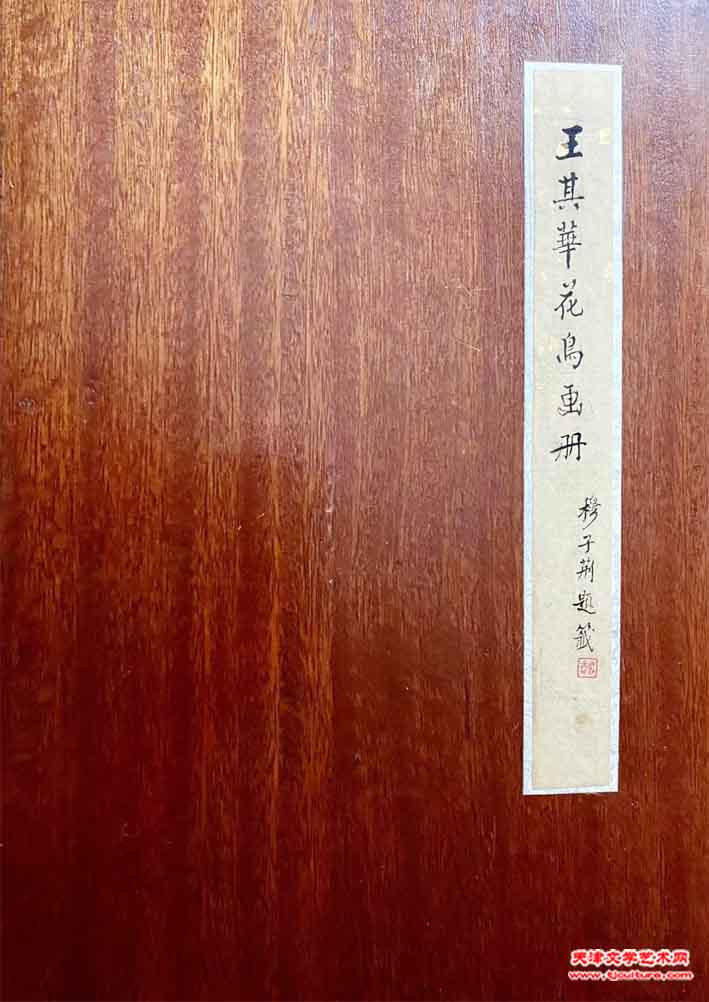 王其華花鳥画册
穆子荆題籤
天津文学艺术网
www.tjculture.com